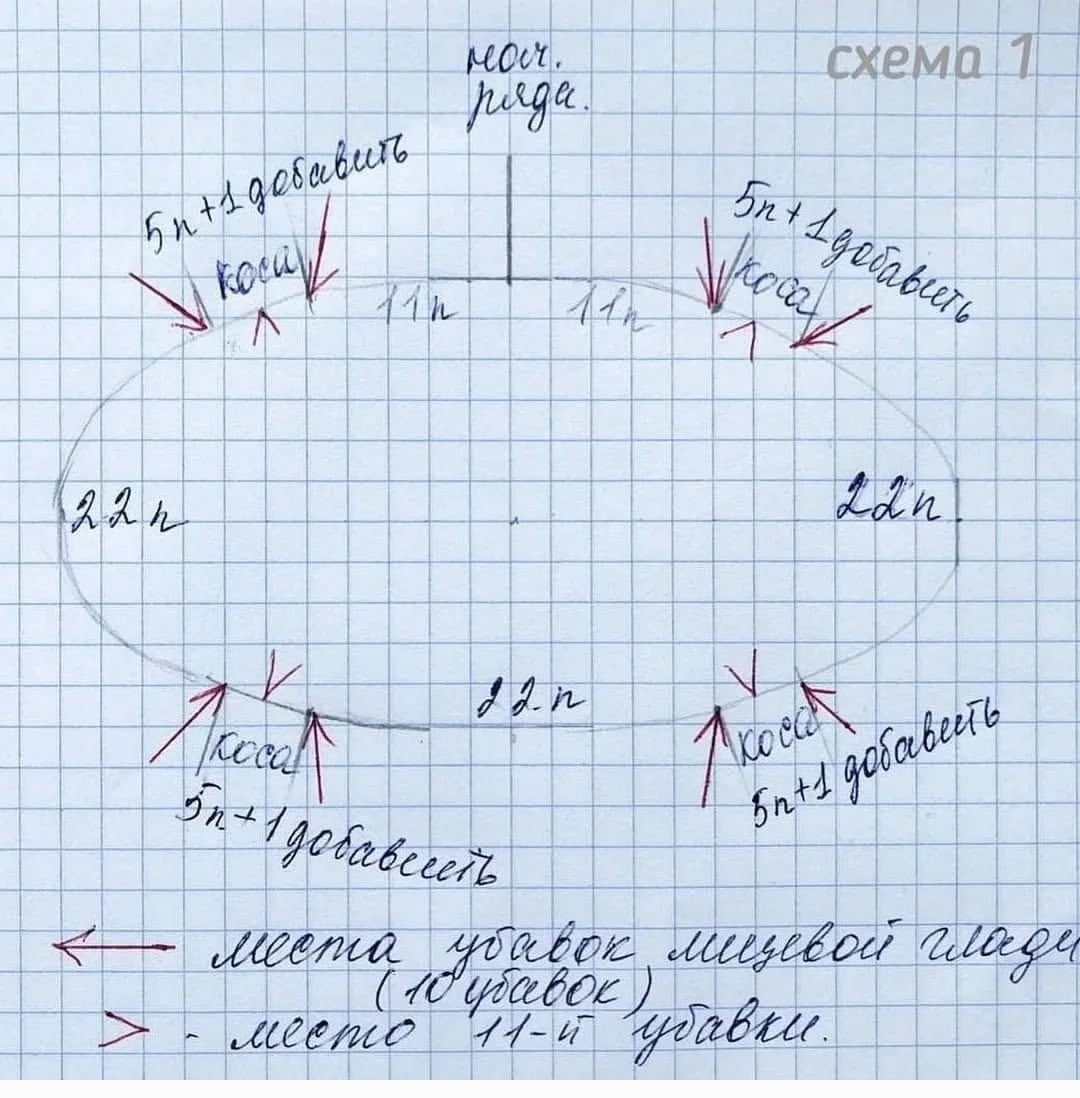 схема 1
нач.
ряда.
5п+1добавить
коса
5п+1добавить
коса
11п
11п
22п
22п.
22п
коса
5п+1добавить
коса
5п+1добавить
места убавок лицевой глади
(10 убавок)
- место 11-й убавки.